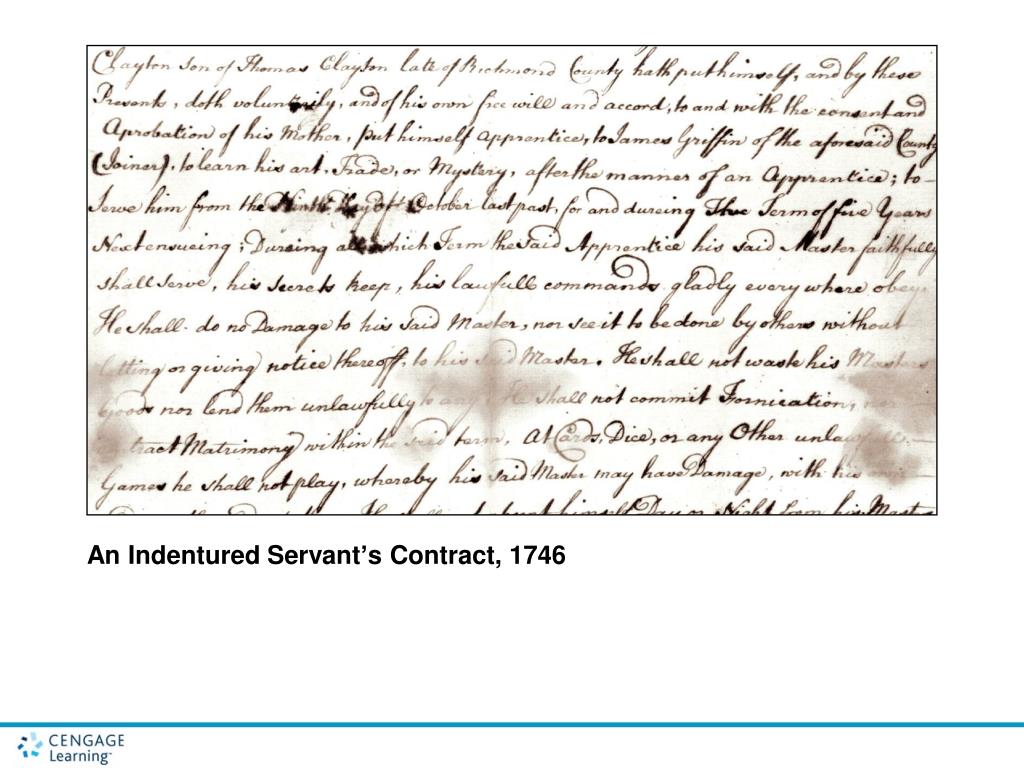 Clayton son of Thomas Clayton late of Richmond County hath put himself, and by these
Presents, doth voluntarily, and of his own free will and accord, to and with the consent and
Aprobation of his Mother, put himself Apprentice, to James Griffin of the aforesaid County
(Joiner), to learn his art, Trade, or Mystery, after the manner of an Apprentice; to
Serve him from the Ninth Day of October last past, for and dureing The Term of five Years
Next ensueing; Dureing all which Term the said Apprentice his said Master faithfully
shall serve, his secrets keep, his lawfull commands gladly every where obey
He shall do no Damage to his said Master, nor see it to be done by others without
letting or giving notice thereoff, to his said Master. He shall not waste his Masters
Goods nor lend them unlawfully to any He shall not commit Fornication, nor
contract Matrimony within the said term. At Cards, Dice, or any Other unlawfull
Games he shall not play, whereby his said Master may have Damage, with his own
himself Day or Night from his Master
An Indentured Servant’s Contract, 1746
CENGAGE
Learning™